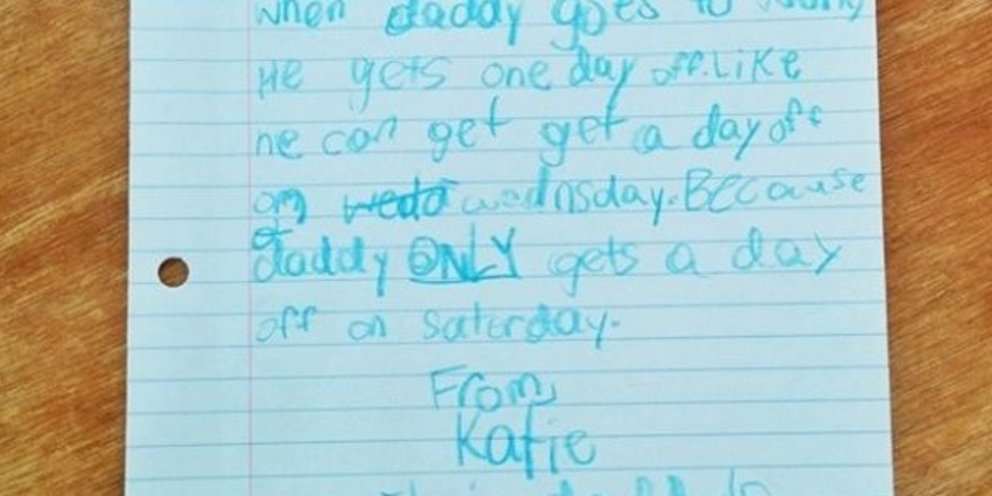 when daddy goes to
He gets one day off. Like
he can get get a day off
on wednsday. BECause
daddy ONLY gets a day
off on saterday.
From,
Katie